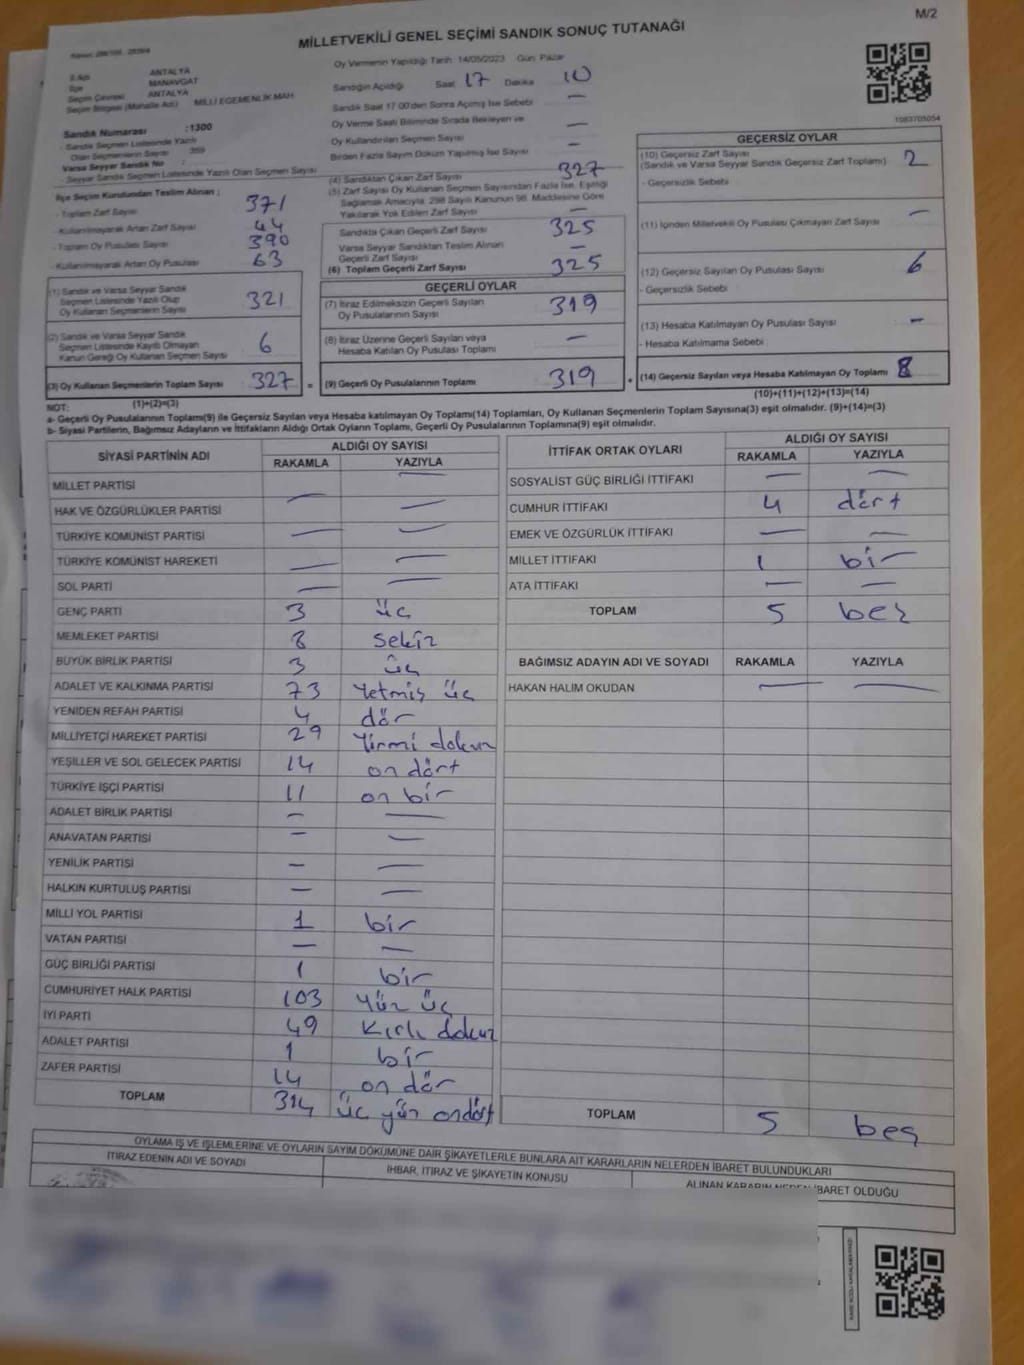 M/2
MİLLETVEKİLİ GENEL SEÇİMİ SANDIK SONUÇ TUTANAĞI
Oy Vermenin Yapıldığı Tarih: 14/05/2023 Gün: Pazar
İlçe
ANTALYA
MANAVGAT
Seçim Çevresi ANTALYA
Seçim Bölgesi (Mahalle Adı) MİLLİ EGEMENLİK MAH.
Sandığın Açıldığı Saat 17 Dakika 10
Sandık Saat 17.00'den Sonra Açılmış İse Sebebi —
Oy Verme Saati Bitiminde Sırada Bekleyen ve
Oy Kullandırılan Seçmen Sayısı —
Birden Fazla Sayım Döküm Yapılmış İse Sayısı —
1083705054
Sandık Numarası : 1300
- Sandık Seçmen Listesinde Yazılı
Olan Seçmenlerin Sayısı : 359
Varsa Seyyar Sandık No :
- Seyyar Sandık Seçmen Listesinde Yazılı Olan Seçmen Sayısı
İlçe Seçim Kurulundan Teslim Alınan ;
- Toplam Zarf Sayısı 371
- Kullanılmayarak Artan Zarf Sayısı 44
- Toplam Oy Pusulası Sayısı 390
- Kullanılmayarak Artan Oy Pusulası 63
(1) Sandık ve Varsa Seyyar Sandık
Seçmen Listesinde Yazılı Olup
Oy Kullanan Seçmenlerin Sayısı 321
(2) Sandık ve Varsa Seyyar Sandık
Seçmen Listesinde Kayıtlı Olmayan
Kanun Gereği Oy Kullanan Seçmen Sayısı 6
(3) Oy Kullanan Seçmenlerin Toplam Sayısı 327 =
(1)+(2)=(3)
(4) Sandıktan Çıkan Zarf Sayısı 327
(5) Zarf Sayısı Oy Kullanan Seçmen Sayısından Fazla İse, Eşitliği
Sağlamak Amacıyla, 298 Sayılı Kanunun 98. Maddesine Göre
Yakılarak Yok Edilen Zarf Sayısı —
Sandıkta Çıkan Geçerli Zarf Sayısı 325
Varsa Seyyar Sandıktan Teslim Alınan
Geçerli Zarf Sayısı —
(6) Toplam Geçerli Zarf Sayısı 325
GEÇERLİ OYLAR
(7) İtiraz Edilmeksizin Geçerli Sayılan
Oy Pusulalarının Sayısı 319
(8) İtiraz Üzerine Geçerli Sayılan veya
Hesaba Katılan Oy Pusulası Toplamı —
(9) Geçerli Oy Pusulalarının Toplamı 319 +
GEÇERSİZ OYLAR
(10) Geçersiz Zarf Sayısı
(Sandık ve Varsa Seyyar Sandık Geçersiz Zarf Toplamı) 2
- Geçersizlik Sebebi
(11) İçinden Milletvekili Oy Pusulası Çıkmayan Zarf Sayısı —
(12) Geçersiz Sayılan Oy Pusulası Sayısı 6
- Geçersizlik Sebebi
(13) Hesaba Katılmayan Oy Pusulası Sayısı —
- Hesaba Katılmama Sebebi
(14) Geçersiz Sayılan veya Hesaba Katılmayan Oy Toplamı 8
(10)+(11)+(12)+(13)=(14)
NOT:
a- Geçerli Oy Pusulalarının Toplamı(9) ile Geçersiz Sayılan veya Hesaba katılmayan Oy Toplamı(14) Toplamları, Oy Kullanan Seçmenlerin Toplam Sayısına(3) eşit olmalıdır. (9)+(14)=(3)
b- Siyasi Partilerin, Bağımsız Adayların ve İttifakların Aldığı Ortak Oyların Toplamı, Geçerli Oy Pusulalarının Toplamına(9) eşit olmalıdır.
SİYASİ PARTİNİN ADI ALDIĞI OY SAYISI
RAKAMLA YAZIYLA
MİLLET PARTİSİ — —
HAK VE ÖZGÜRLÜKLER PARTİSİ — —
TÜRKİYE KOMÜNİST PARTİSİ — —
TÜRKİYE KOMÜNİST HAREKETİ — —
SOL PARTİ — —
GENÇ PARTİ 3 üç
MEMLEKET PARTİSİ 8 sekiz
BÜYÜK BİRLİK PARTİSİ 3 üç
ADALET VE KALKINMA PARTİSİ 73 Yetmiş üç
YENİDEN REFAH PARTİSİ 4 dör
MİLLİYETÇİ HAREKET PARTİSİ 29 Yirmi dokuz
YEŞİLLER VE SOL GELECEK PARTİSİ 14 on dört
TÜRKİYE İŞÇİ PARTİSİ 11 on bir
ADALET BİRLİK PARTİSİ — —
ANAVATAN PARTİSİ — —
YENİLİK PARTİSİ — —
HALKIN KURTULUŞ PARTİSİ — —
MİLLİ YOL PARTİSİ 1 bir
VATAN PARTİSİ — —
GÜÇ BİRLİĞİ PARTİSİ 1 bir
CUMHURİYET HALK PARTİSİ 103 Yüz üç
İYİ PARTİ 49 Kırk dokuz
ADALET PARTİSİ 1 bir
ZAFER PARTİSİ 14 on dör
TOPLAM 314 üç yüz ondört
İTTİFAK ORTAK OYLARI ALDIĞI OY SAYISI
RAKAMLA YAZIYLA
SOSYALİST GÜÇ BİRLİĞİ İTTİFAKI — —
CUMHUR İTTİFAKI 4 dört
EMEK VE ÖZGÜRLÜK İTTİFAKI — —
MİLLET İTTİFAKI 1 bir
ATA İTTİFAKI — —
TOPLAM 5 beş
BAĞIMSIZ ADAYIN ADI VE SOYADI RAKAMLA YAZIYLA
HAKAN HALIM OKUDAN — —
TOPLAM 5 beş
OYLAMA İŞ VE İŞLEMLERİNE VE OYLARIN SAYIM DÖKÜMÜNE DAİR ŞİKAYETLERLE BUNLARA AİT KARARLARIN NELERDEN İBARET BULUNDUKLARI
İTİRAZ EDENİN ADI VE SOYADI
İHBAR, İTİRAZ VE ŞİKAYETİN KONUSU
ALINAN KARARIN NEDEN İBARET OLDUĞU